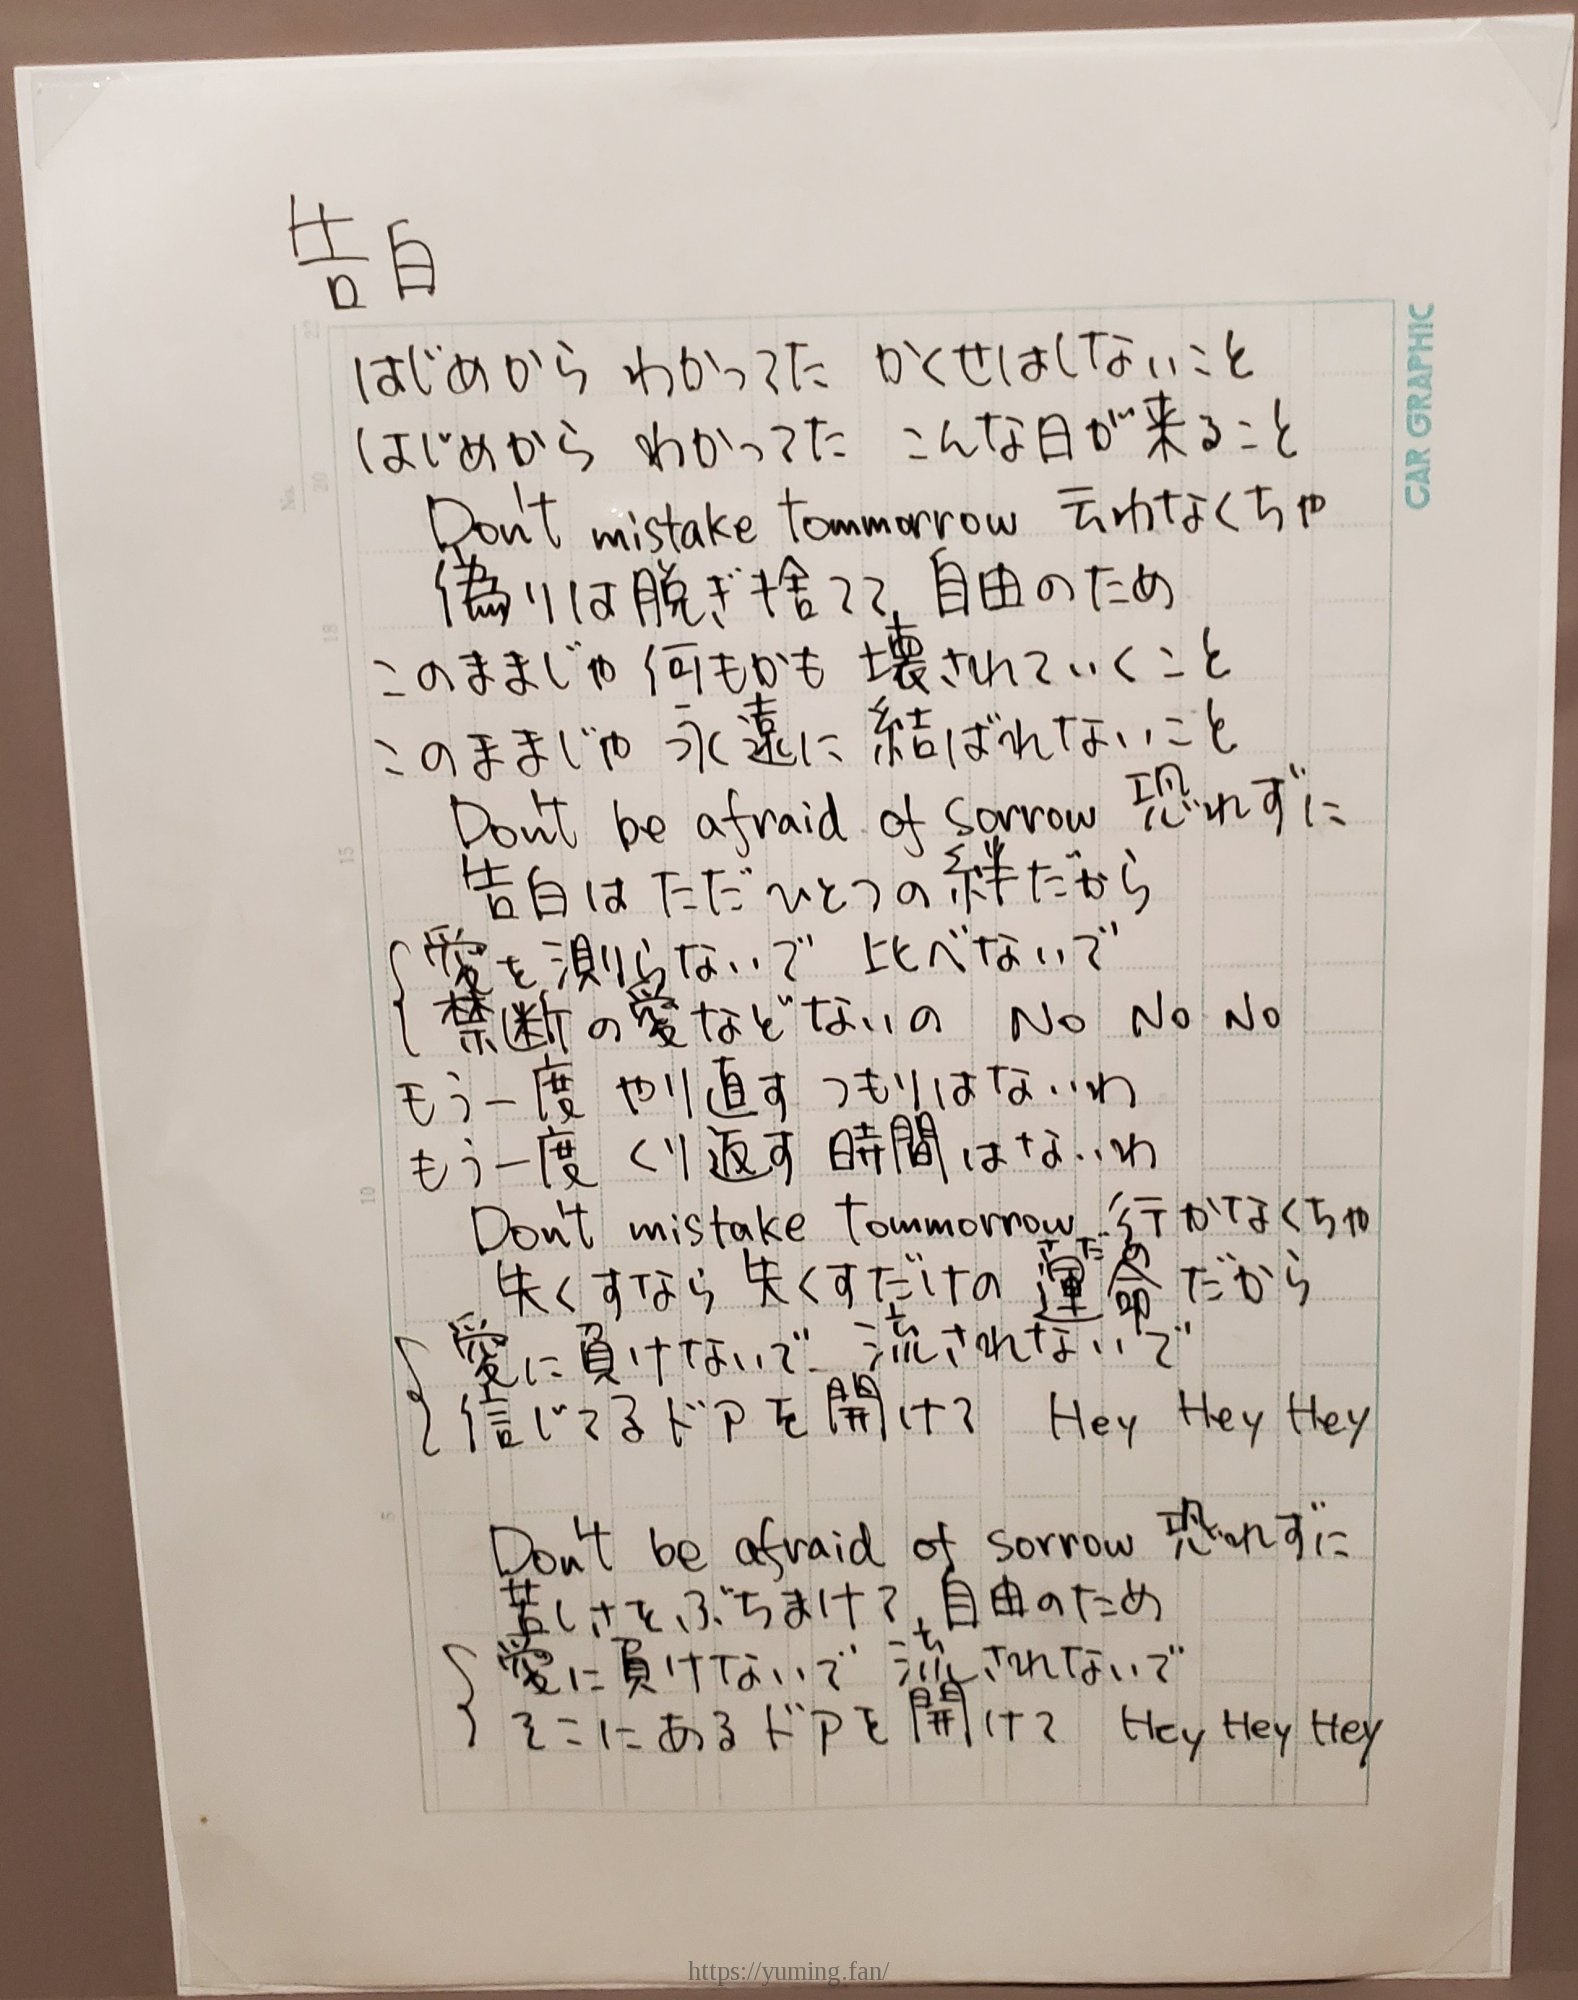 告白
はじめから わかってた かくせはしないこと
はじめから わかってた こんな日が来ること
Don't mistake tommorrow 云わなくちゃ
偽りは脱ぎ捨てて, 自由のため
このままじゃ 何もかも 壊されていくこと
このままじゃ 永遠に 結ばれないこと
Don't be afraid of sorrow 恐れずに
告白は ただひとつの絆だから
愛を測らないで 比べないで
禁断の愛などないの No No No
もう一度 やり直す つもりはないわ
もう一度 くり返す 時間はないわ
Don't mistake tommorrow 行かなくちゃ
さだめ
失くすなら 失くすだけの 運命だから
愛に負けないで 流されないで
信じてるドアを開けて Hey Hey Hey
Don't be afraid of sorrow 恐れずに
苦しさをぶちまけて, 自由のため
愛に負けないで 流されないで
そこにあるドアを開けて Hey Hey Hey
CAR GRAPHIC
No.
22
20
18
15
10
5
https://yuming.fan/